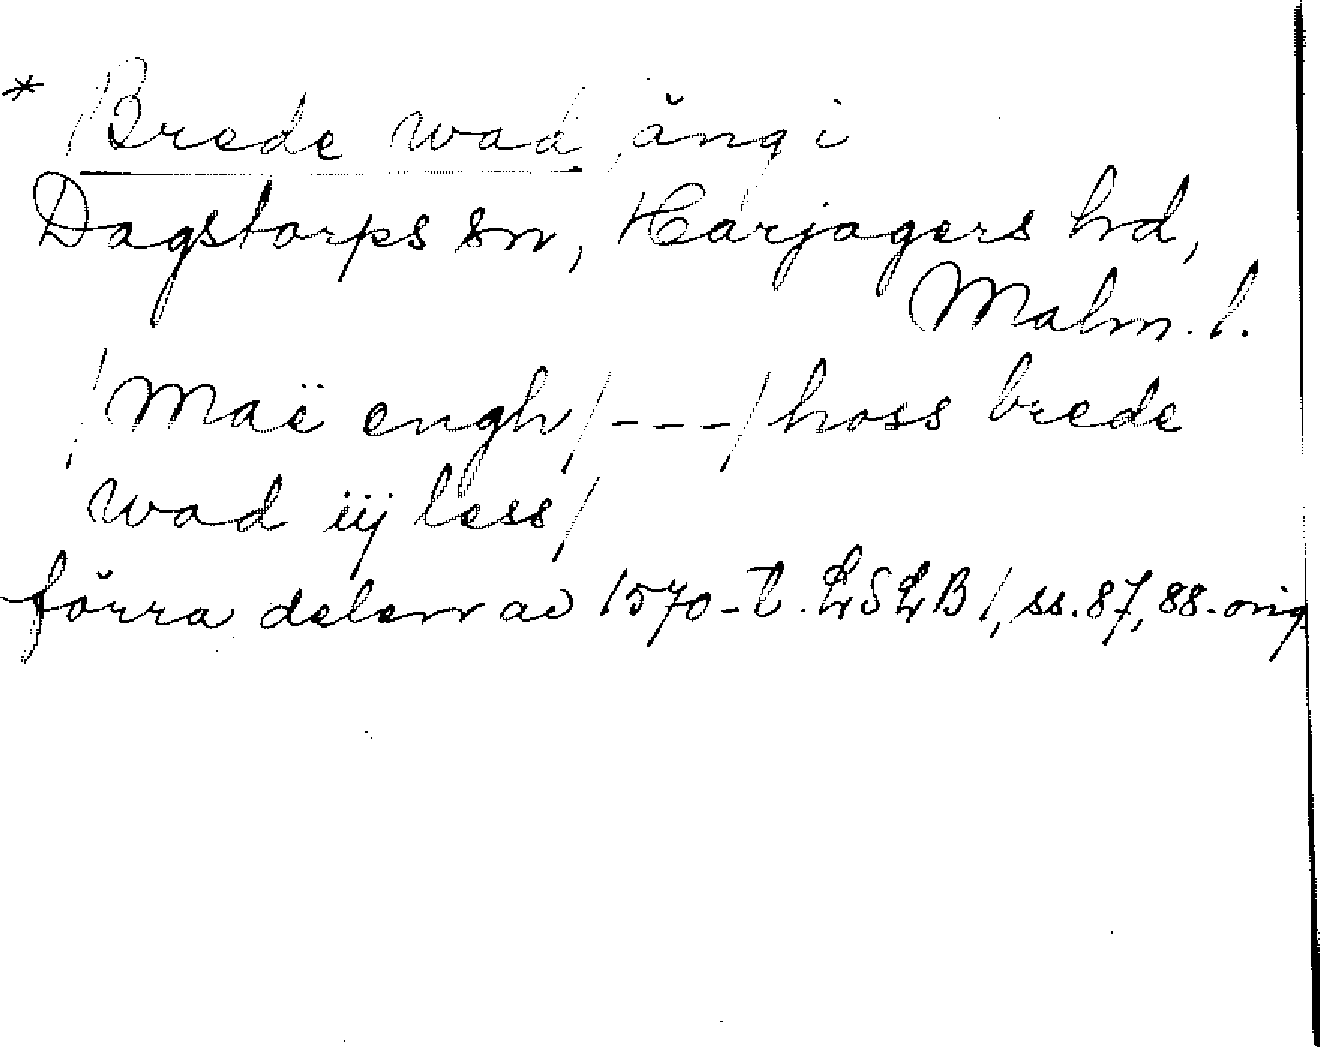 * /Brede wad/, äng i
Dagstorps sn, Harjagers hd,
Malm. l.
/Maë engh/---/hoss brede
wad iij less/
förra delen av 1570-t. LSLB 1, ss. 87, 88. orig.